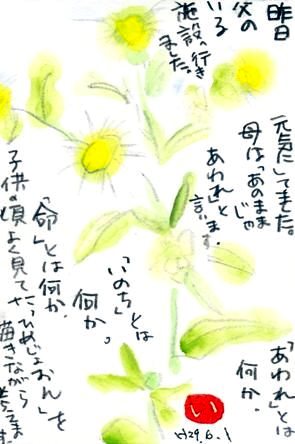 昨日
父の
いる
施設へ行き
ました。
元気にしてました。
母は「あのまま
じゃ
あわれ」と
言います。
「あわれ」とは
何か。
「いのち」とは
何か。
「命」とは何か。
子供の頃よく見てた「ひめじょおん」を
描きながら
い
H29.6.1